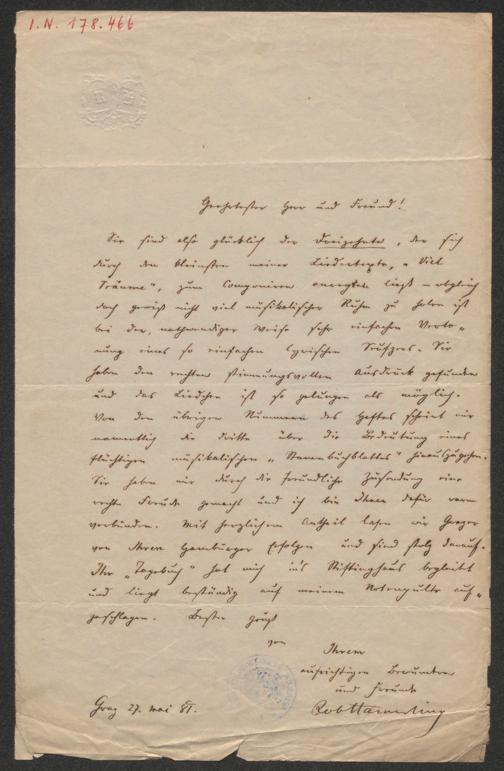 I.N. 178.466
Geehrtester Herr und Freund!
Sie sind also glücklich der Dreizehnte, der sich
durch den kleinsten meiner Liedertexte, „Viel
Träume", zum Componieren anregen ließ – obgleich
doch gewiß nicht viel musikalischer Ruhm zu holen ist
bei der, nothwendiger Weise sehr einfachen Verto-
nung eines so einfachen lyrischen Seufzers. Sie
haben den rechten stimmungsvollen Ausdruck gefunden
und das Liedchen ist so gelungen als möglich.
Von den übrigen Nummern des Heftes scheint mir
namentlich die dritte über die Bedeutung eines
flüchtigen musikalischen „Stammbuchblattes" hinauszugehen.
Sie haben mir durch die freundliche Zusendung eine
rechte Freude gemacht und ich bin Ihnen dafür warm
verbunden. Mit herzlichem Antheil lasen wir Grazer
von Ihren Hamburger Erfolgen und sind stolz darauf.
Ihr „Tagebuch" hat mich ins Stiftinghaus begleitet
und liegt beständig auf meinem Notenpulte auf-
geschlagen. Besten Gruß
von
Ihrem
aufrichtigen Bewunderer
und Freunde
Graz 27. Mai 81. Rob Hamerling